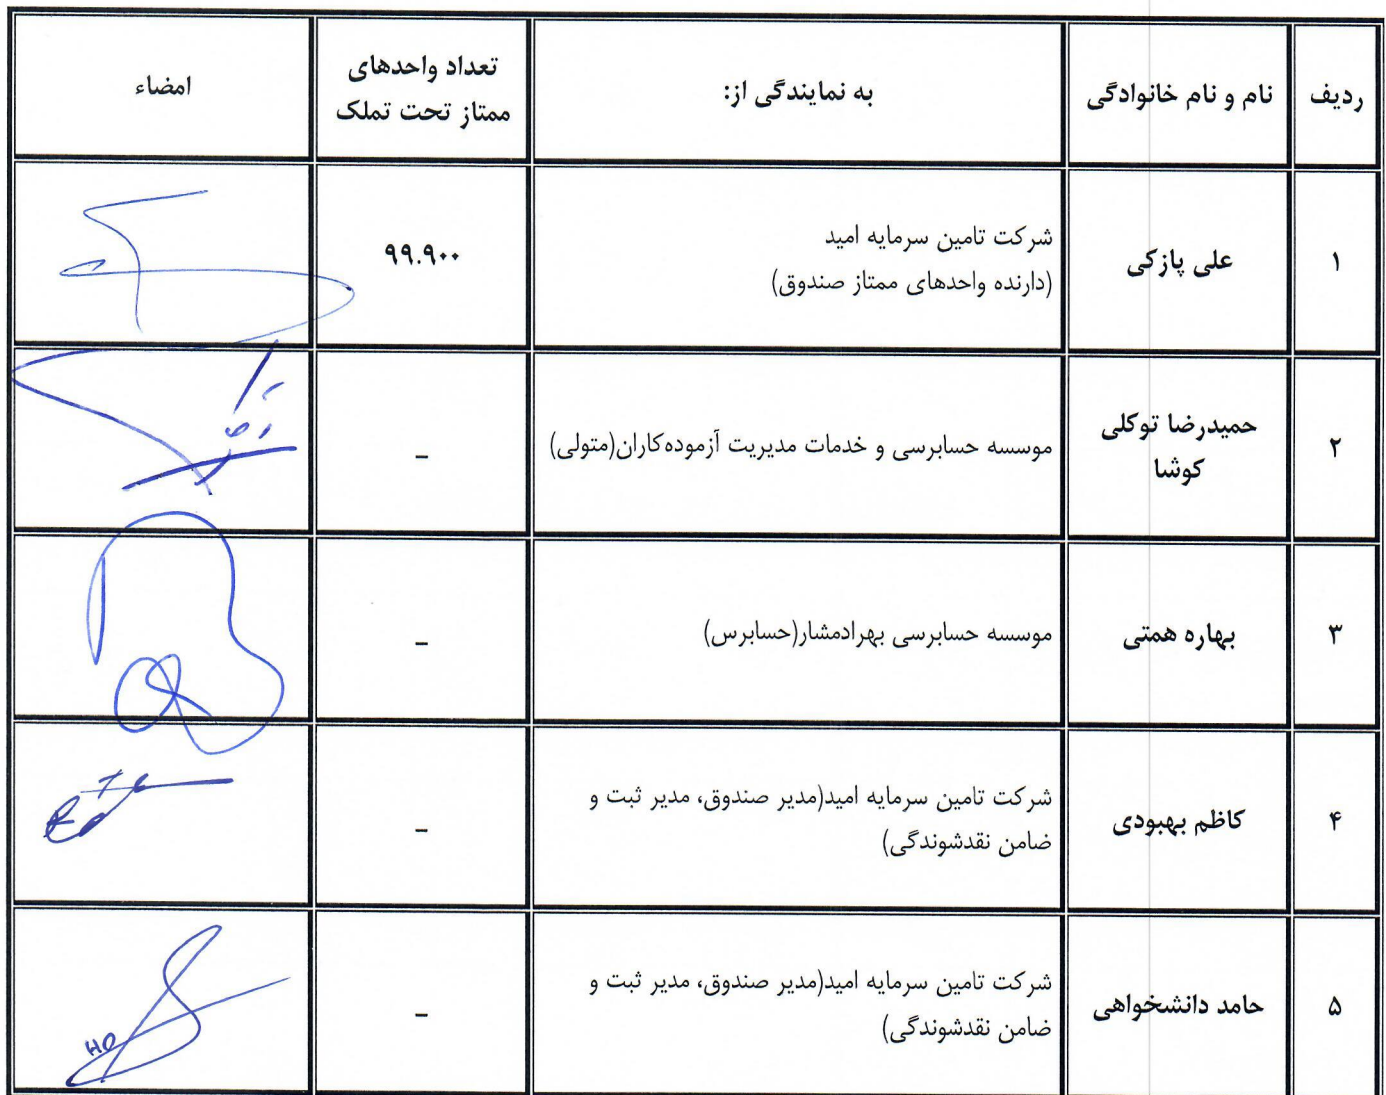 ردیف
نام و نام خانوادگی
به نمایندگی از:
تعداد واحدهای
ممتاز تحت تملک
امضاء
۱
علی پازکی
شرکت تامین سرمایه امید
(دارنده واحدهای ممتاز صندوق)
۹۹.۹۰۰
۲
حمیدرضا توکلی
کوشا
موسسه حسابرسی و خدمات مدیریت آزموده‌کاران(متولی)
–
۳
بهاره همتی
موسسه حسابرسی بهرادمشار(حسابرس)
–
۴
کاظم بهبودی
شرکت تامین سرمایه امید(مدیر صندوق، مدیر ثبت و
ضامن نقدشوندگی)
–
۵
حامد دانشخواهی
شرکت تامین سرمایه امید(مدیر صندوق، مدیر ثبت و
ضامن نقدشوندگی)
–